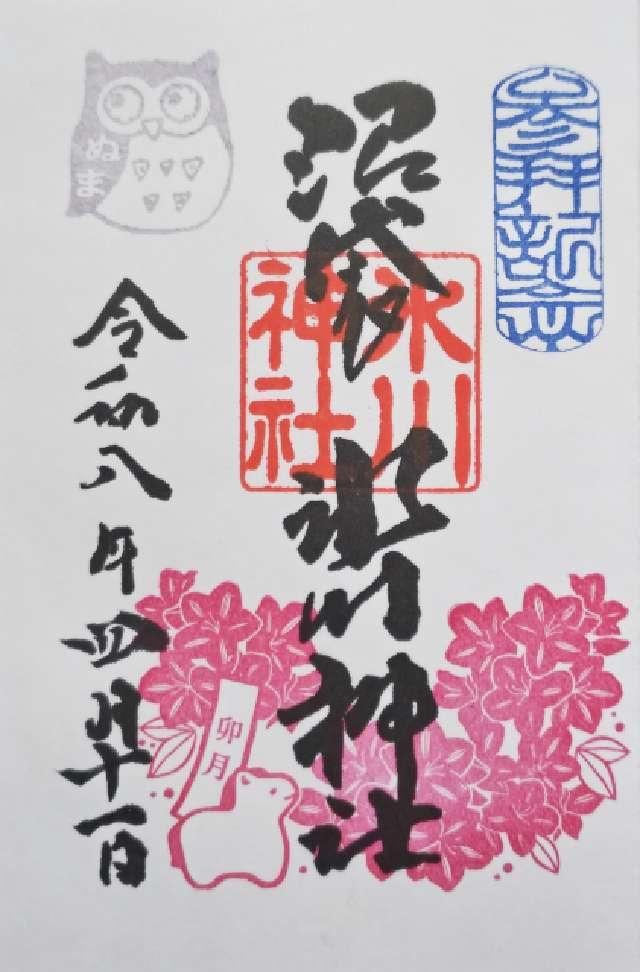 参拝祈念
沼袋
氷川神社
氷川
神社
ぬま
令和八年四月十一日
卯月